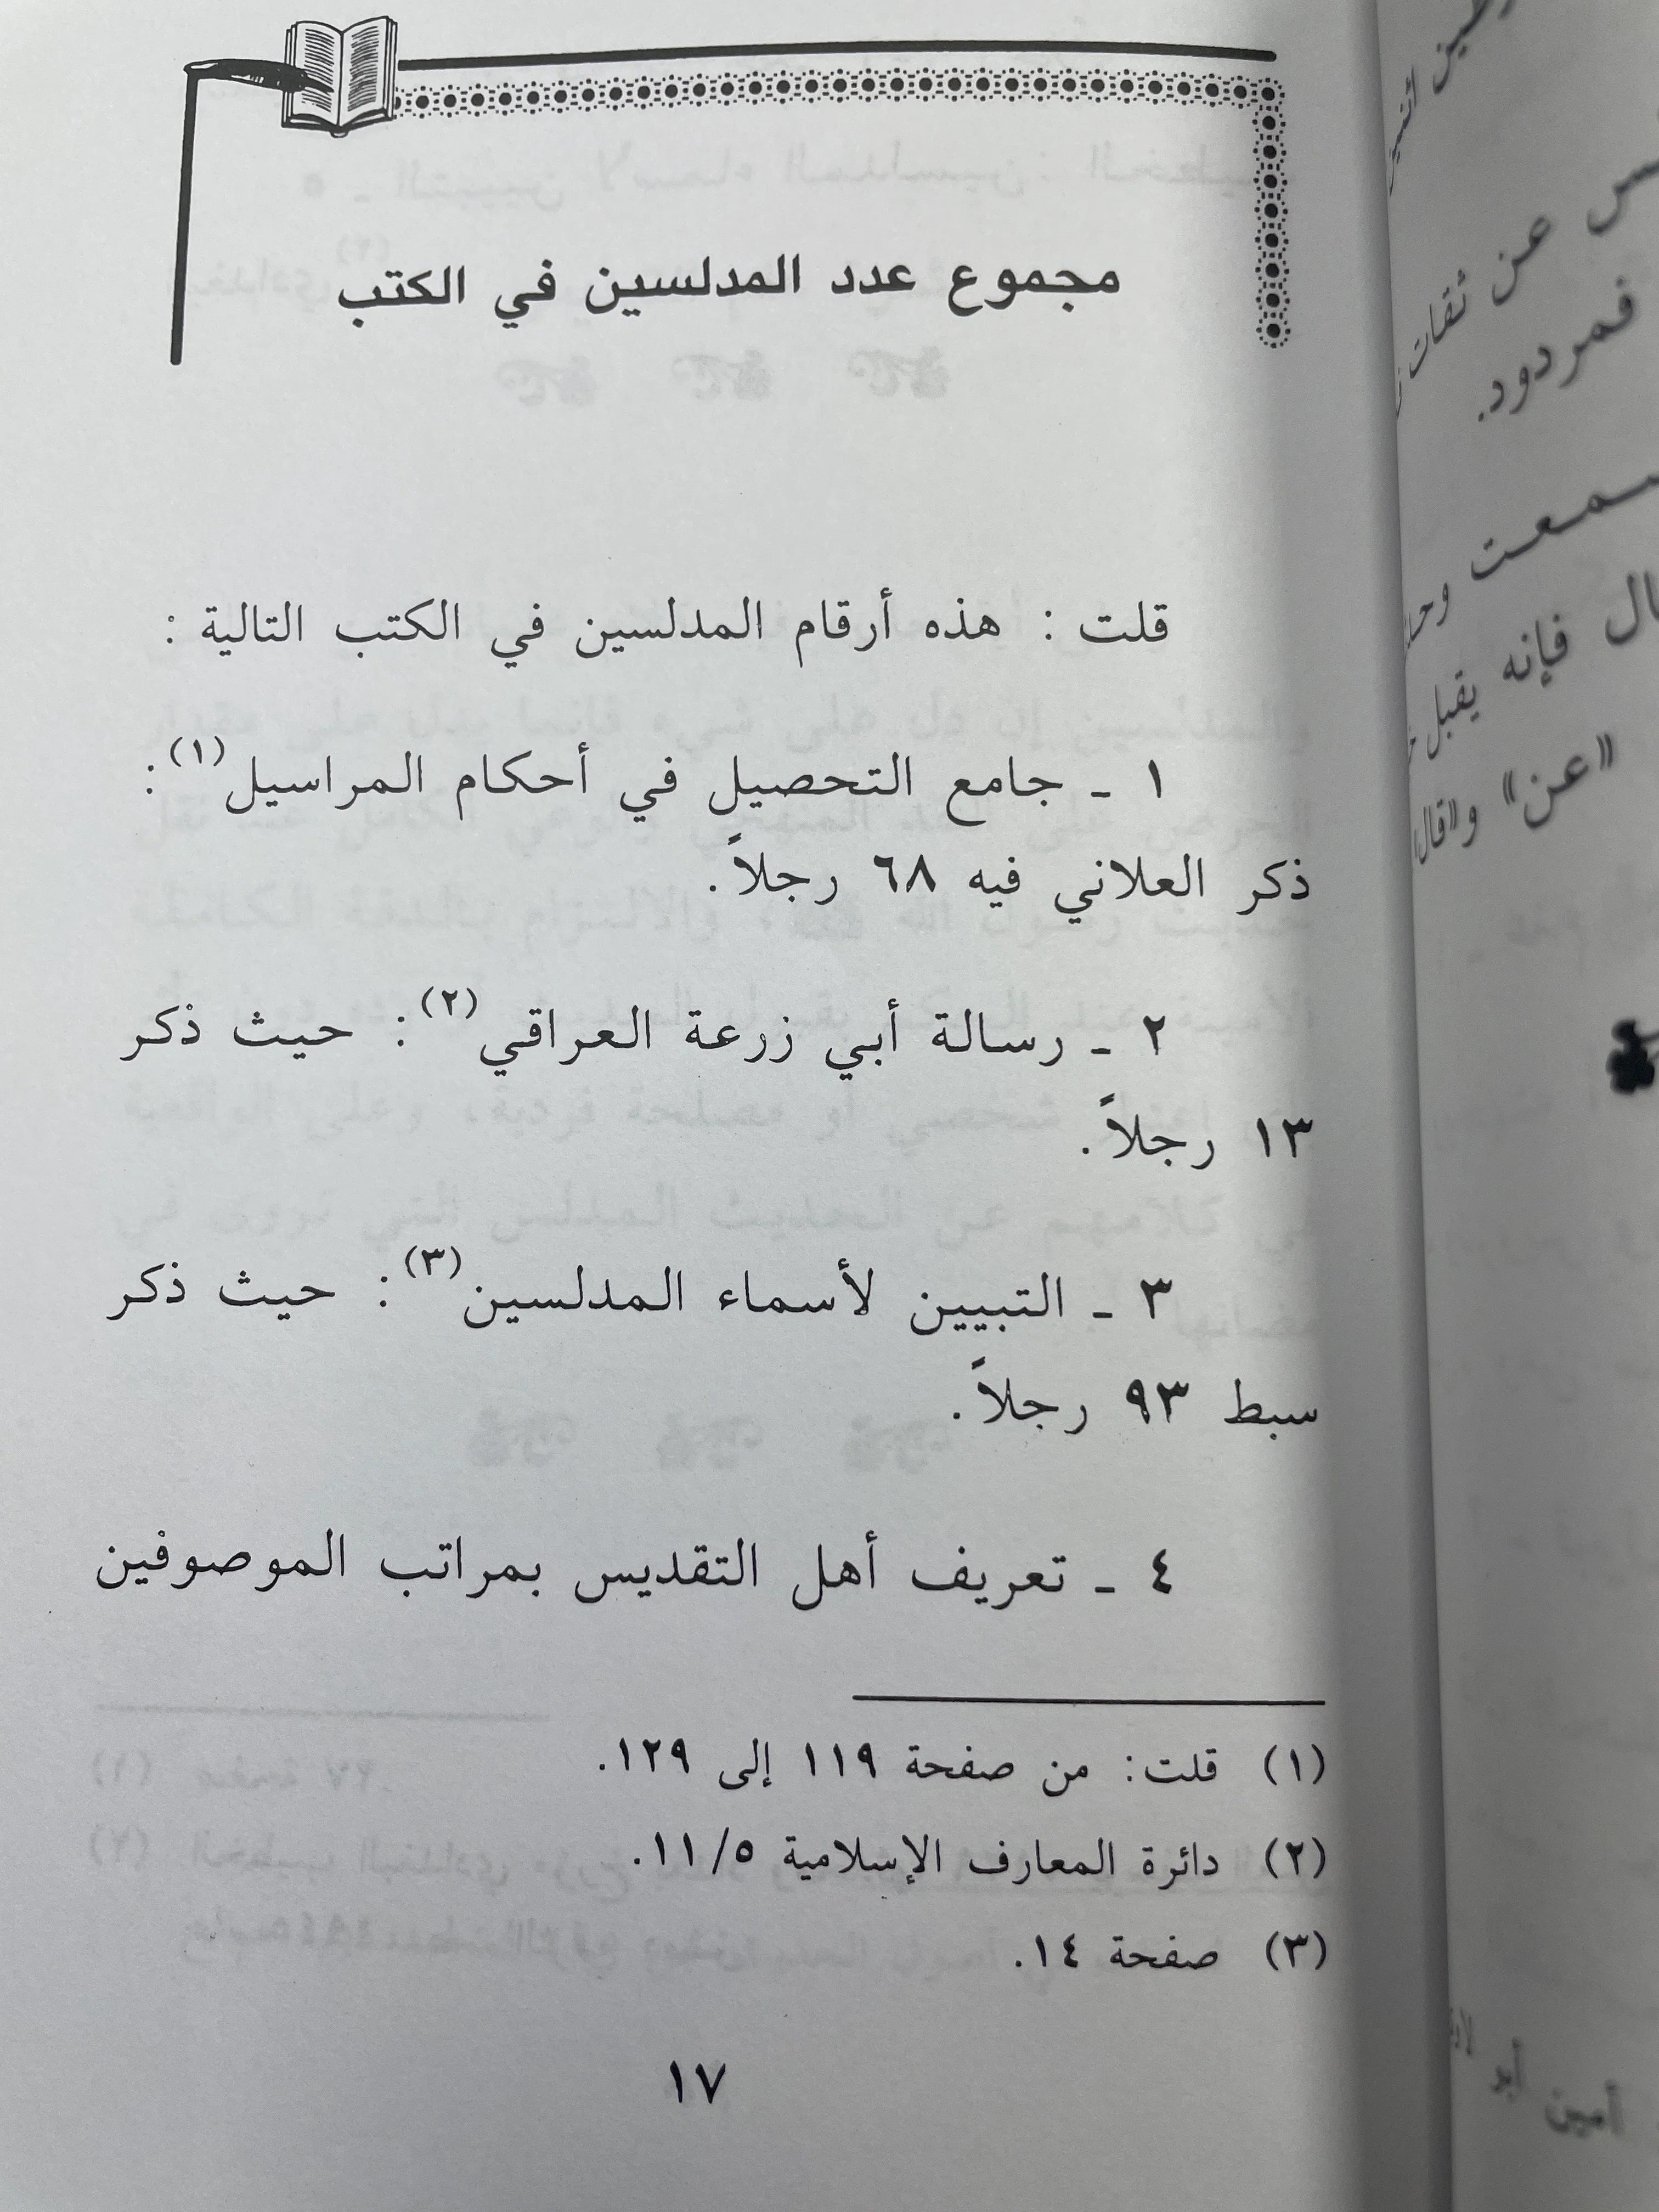 مجموع عدد المدلسين في الكتب
قلت : هذه أرقام المدلسين في الكتب التالية :
١ ـ جامع التحصيل في أحكام المراسيل(١) :
ذكر العلاني فيه ٦٨ رجلاً.
٢ ـ رسالة أبي زرعة العراقي(٢) : حيث ذكر
١٣ رجلاً.
٣ ـ التبيين لأسماء المدلسين(٣) : حيث ذكر
سبط ٩٣ رجلاً.
٤ ـ تعريف أهل التقديس بمراتب الموصوفين
(١) قلت: من صفحة ١١٩ إلى ١٢٩.
(٢) دائرة المعارف الإسلامية ١١/٥.
(٣) صفحة ١٤.
١٧
عن ثقات
فمردود.
فإنه يقبل
«عن» و«قال